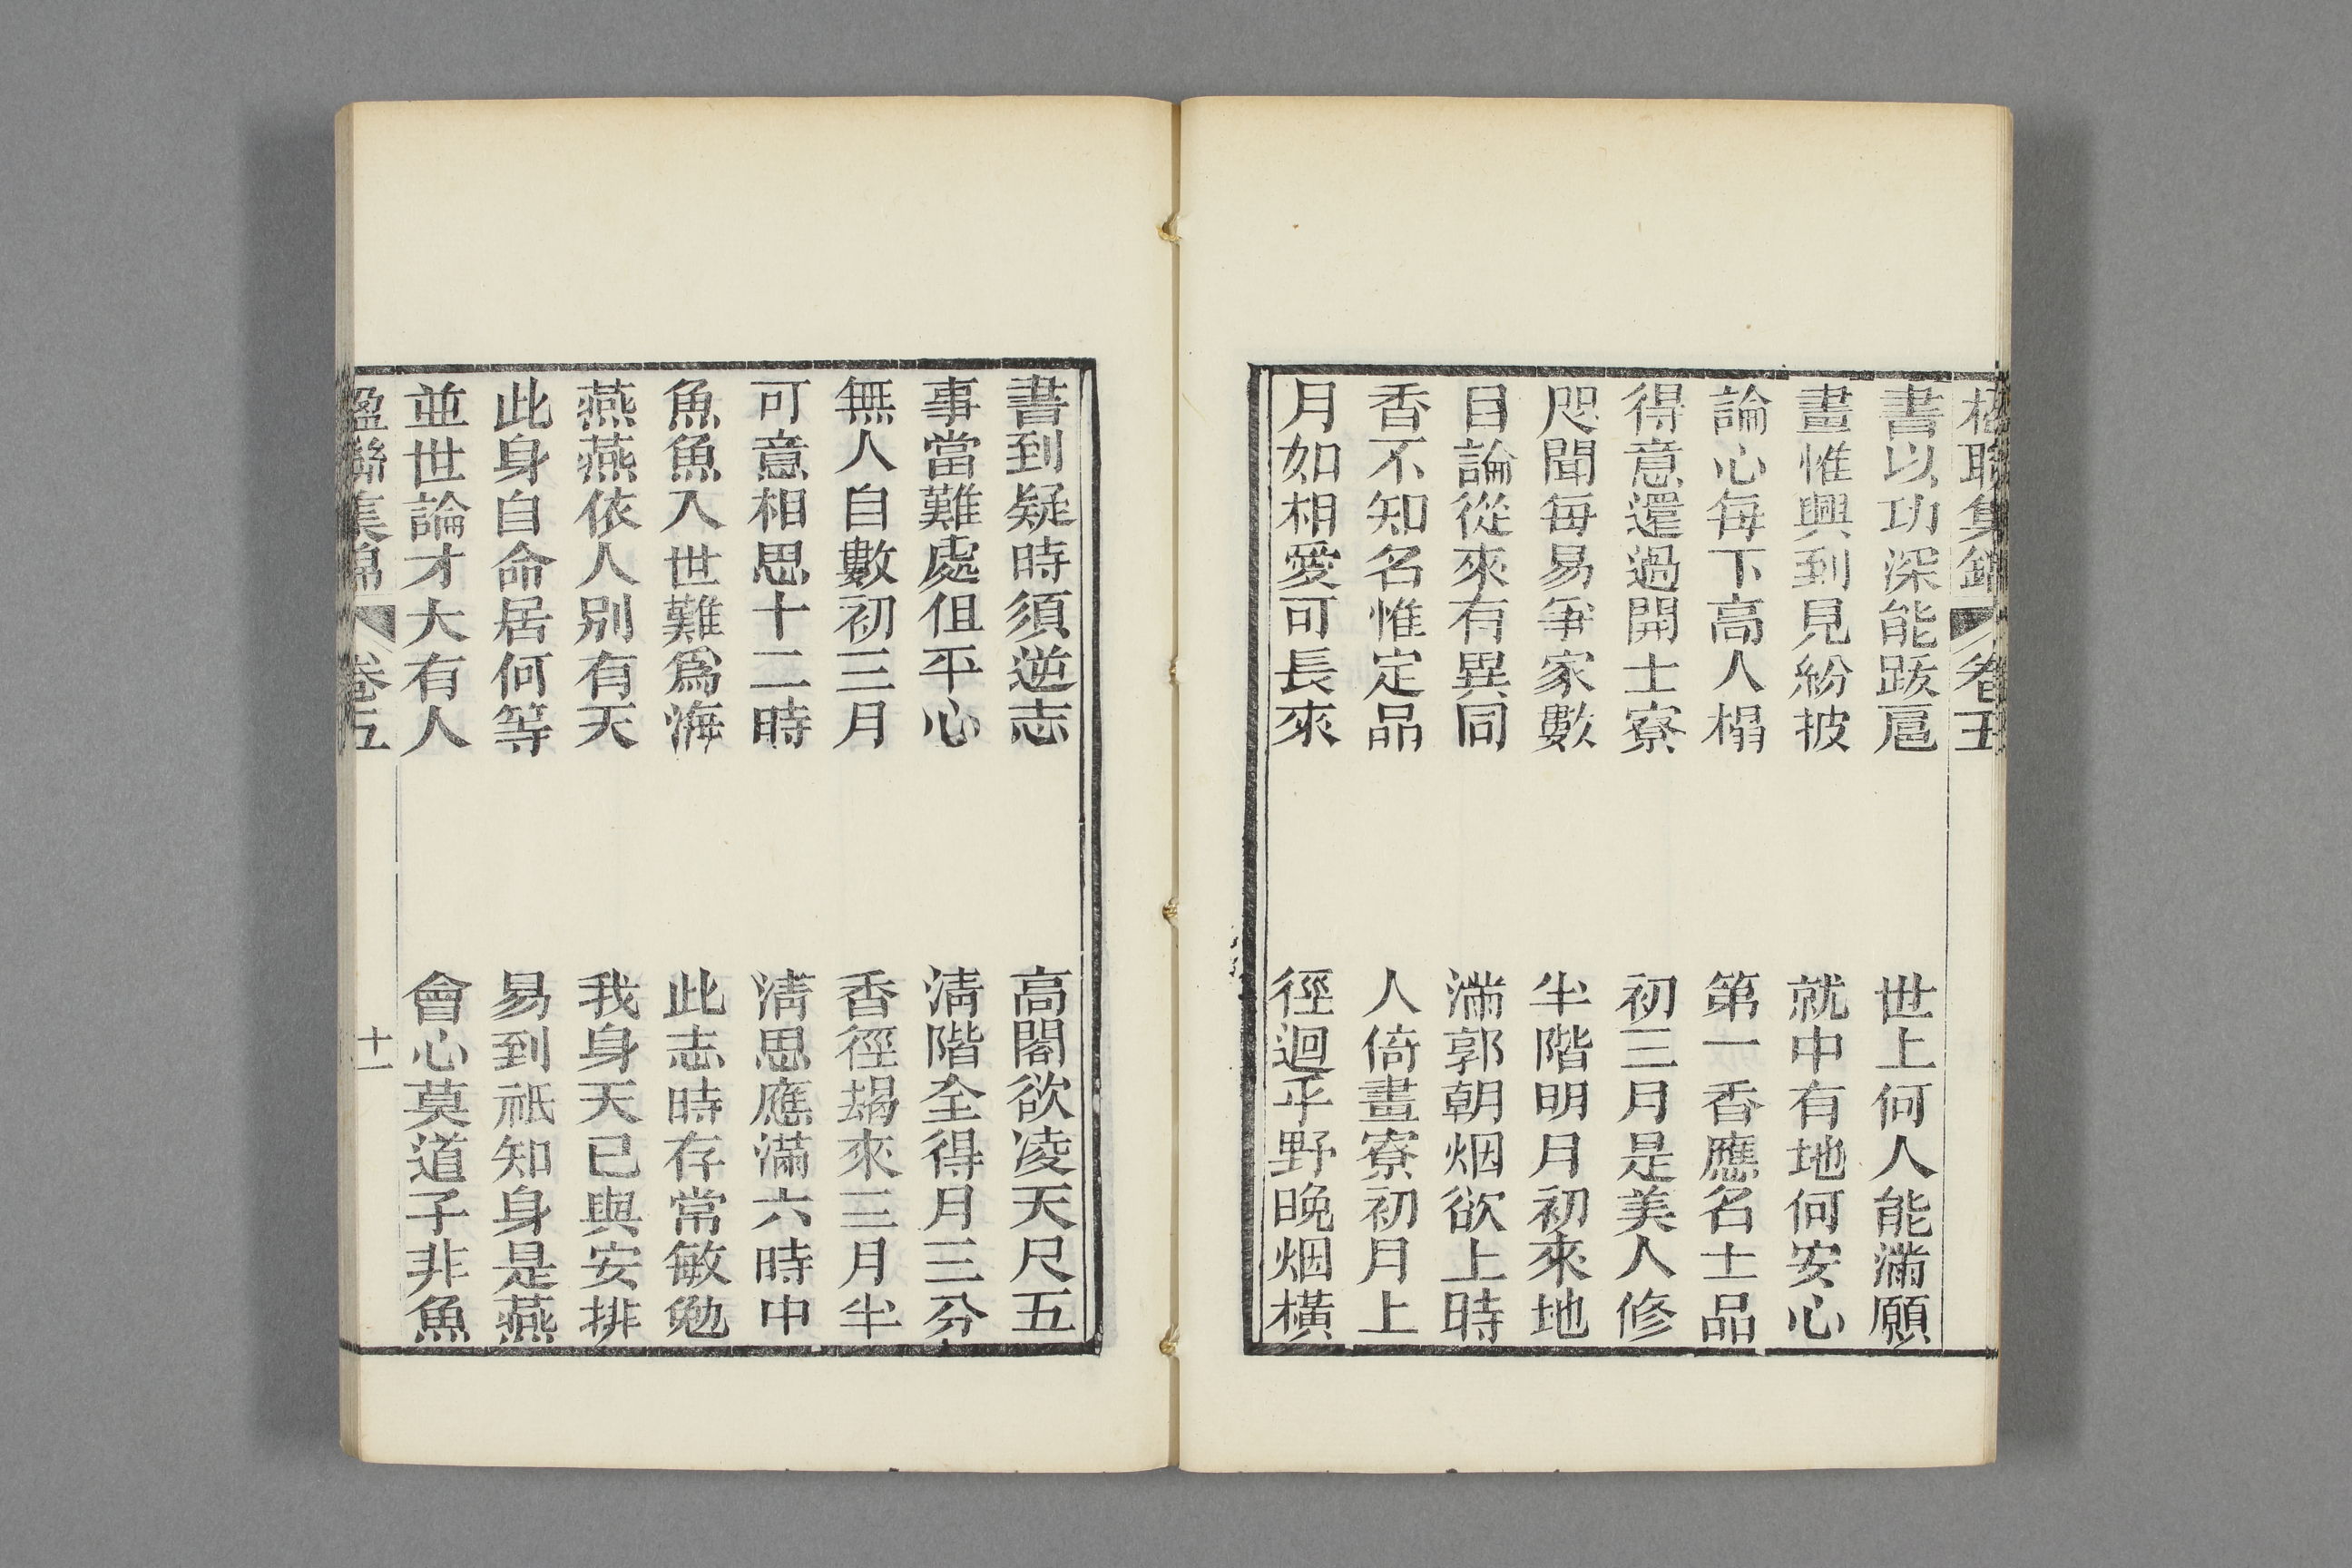 聯集錦 卷五
書以功深能跋扈 世上何人能滿願
畫惟興到見紛披 就中有地何安心
論心每下高人榻 第一香應名士品
得意還過開士寮 初三月是美人修
咫聞每易爭家數 半階明月初來地
目論從來有異同 滿郭朝烟欲上時
香不知名惟定品 人倚畫寮初月上
月如相愛可長來 徑迴平野晚烟橫
書到疑時須逆志 高閣欲凌天尺五
事當難處但平心 清階全得月三分
無人自數初三月 香徑朅來三月半
可意相思十二時 清思應滿六時中
魚魚入世難為海 此志時存常敏勉
燕燕依人別有天 我身天已與安排
此身自命居何等 易到祇知身是燕
並世論才大有人 會心莫道子非魚
楹聯集錦 卷五 十一